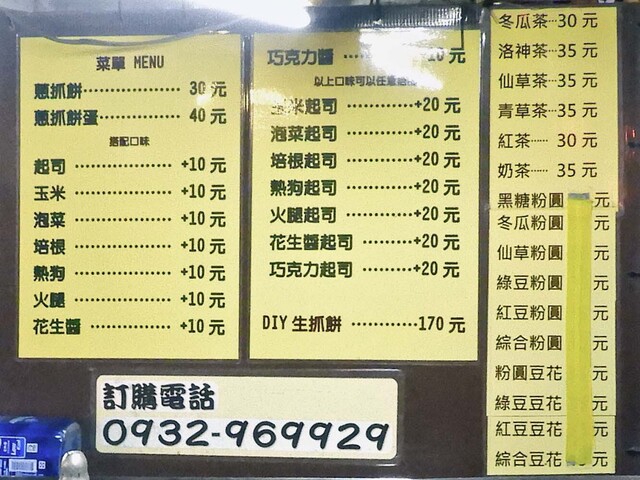 菜單 MENU
蔥抓餅·········· 30 元
蔥抓餅蛋········ 40 元
搭配口味
起司 ·············· +10 元
玉米 ·············· +10 元
泡菜 ·············· +10 元
培根 ·············· +10 元
熱狗 ·············· +10 元
火腿 ·············· +10 元
花生醬 ············ +10 元
巧克力醬 ·········· 10 元
以上口味可以任意
玉米起司 ··········+20 元
泡菜起司 ··········+20 元
培根起司 ··········+20 元
熱狗起司 ··········+20 元
火腿起司 ··········+20 元
花生醬起司 ········+20 元
巧克力起司 ········+20 元
DIY 生抓餅 ············170 元
冬瓜茶···30 元
洛神茶···35 元
仙草茶···35 元
青草茶···35 元
紅茶······ 30 元
奶茶······ 35 元
黑糖粉圓 元
冬瓜粉圓 元
仙草粉圓 元
綠豆粉圓 元
紅豆粉圓 元
綜合粉圓 元
粉圓豆花 元
綠豆豆花 元
紅豆豆花 元
綜合豆花 元
訂購電話
0932-969929